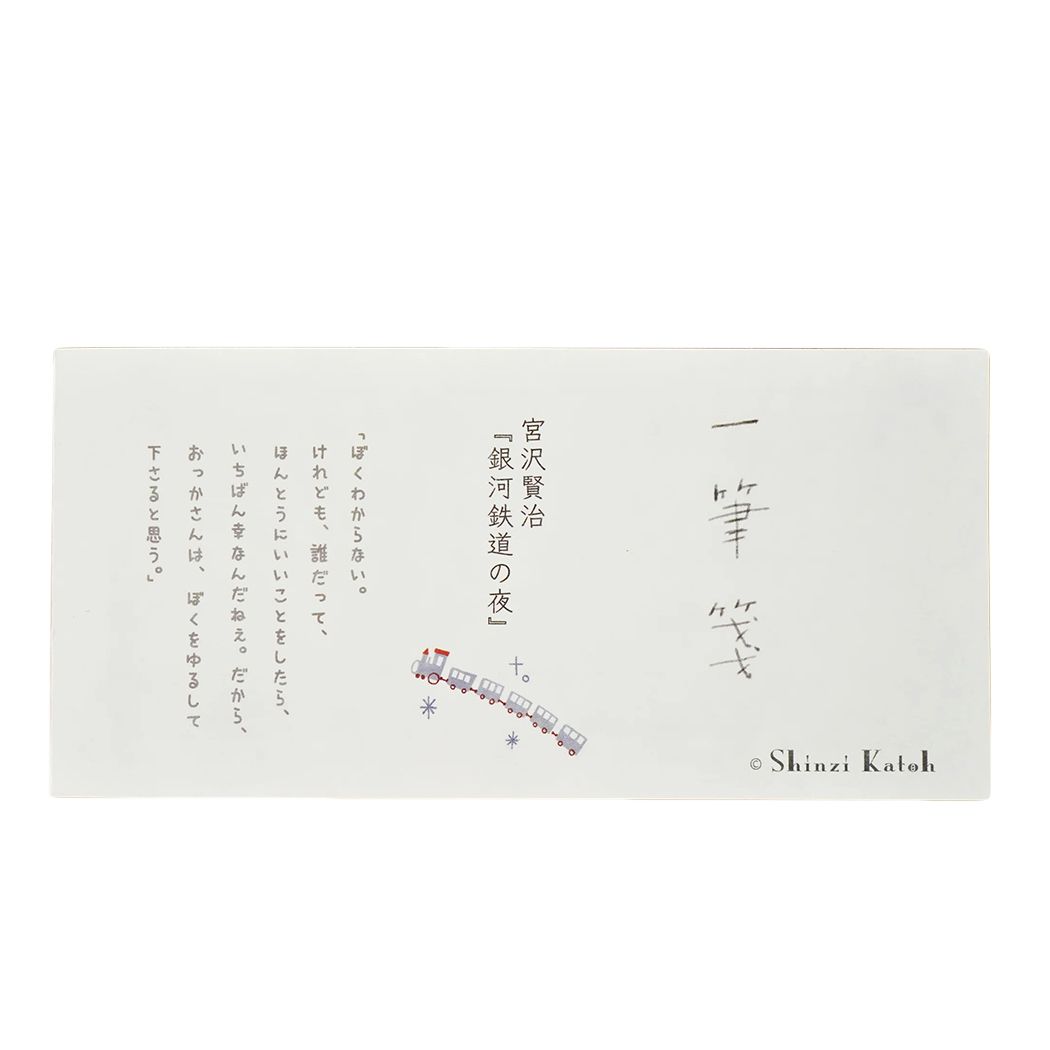 一筆箋
宮沢賢治
『銀河鉄道の夜』
「ぼくわからない。
けれども、誰だって、
ほんとうにいいことをしたら、
いちばん幸なんだねえ。だから、
おっかさんは、ぼくをゆるして
下さると思う。」
© Shinzi Katoh